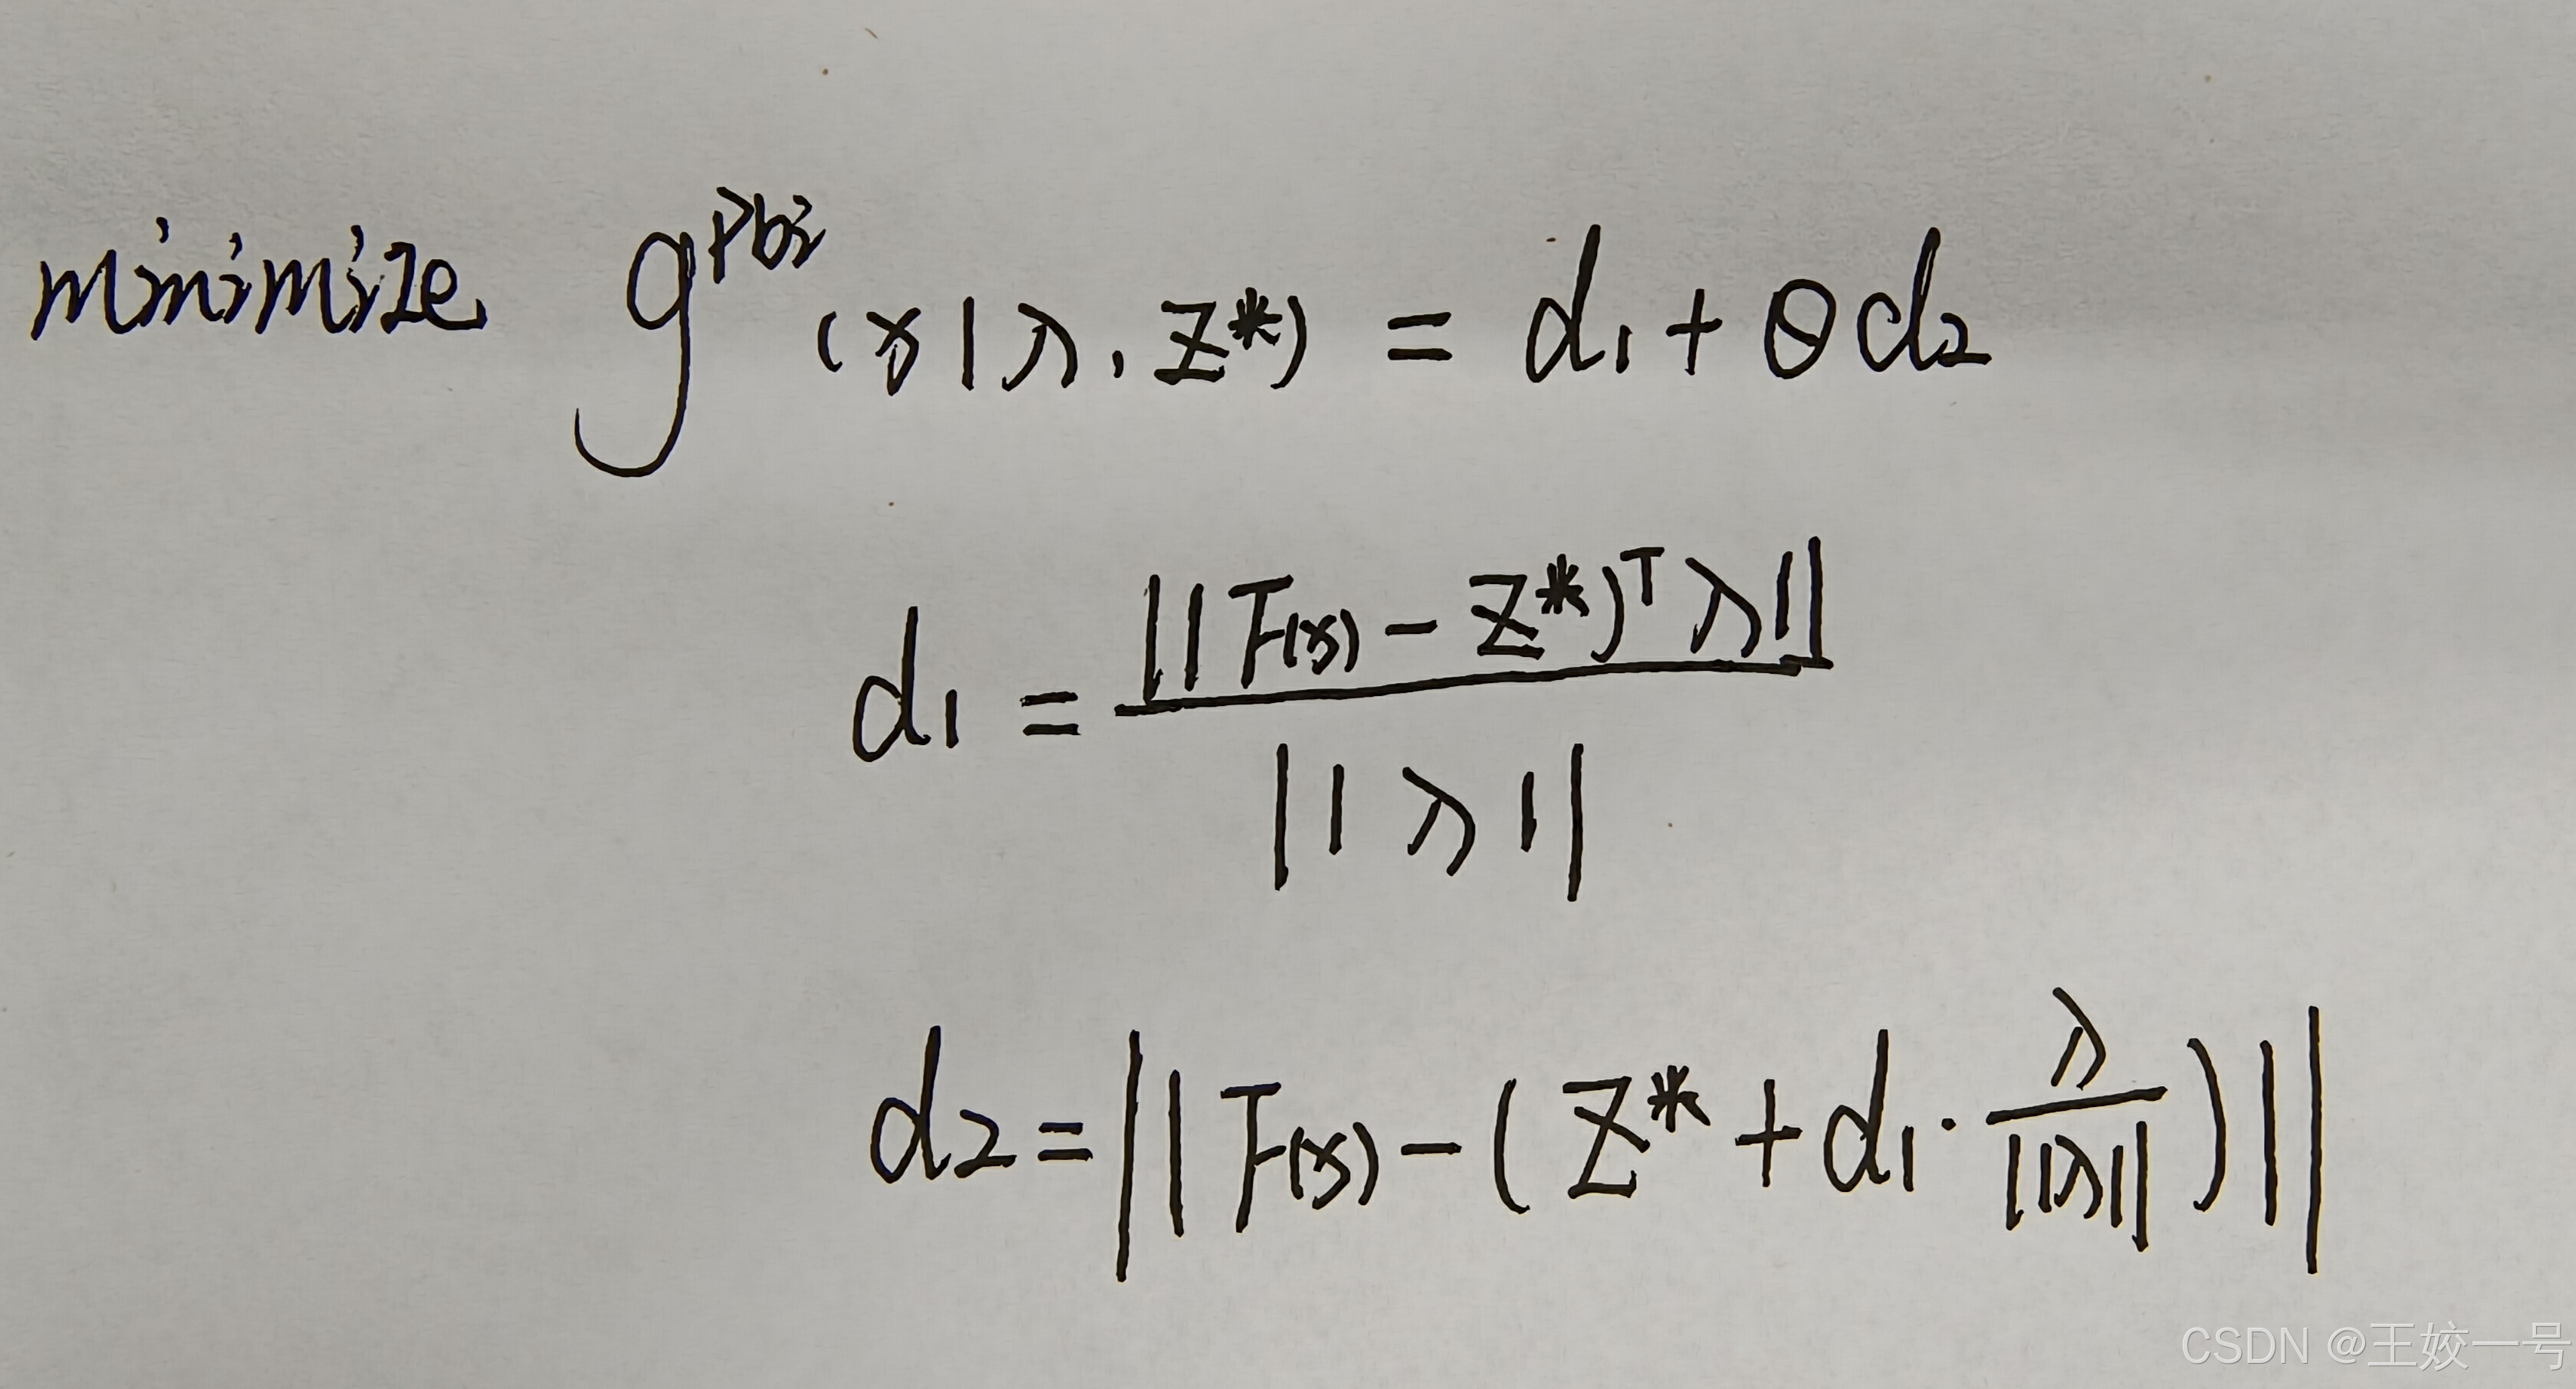 minimize g^pbi (x|λ, z*) = d₁ + θd₂
d₁ = ||F(x) - z*)ᵀλ|| / ||λ||
d₂ = ||F(x) - (z* + d₁ · λ/||λ||)||
CSDN @王姣一号